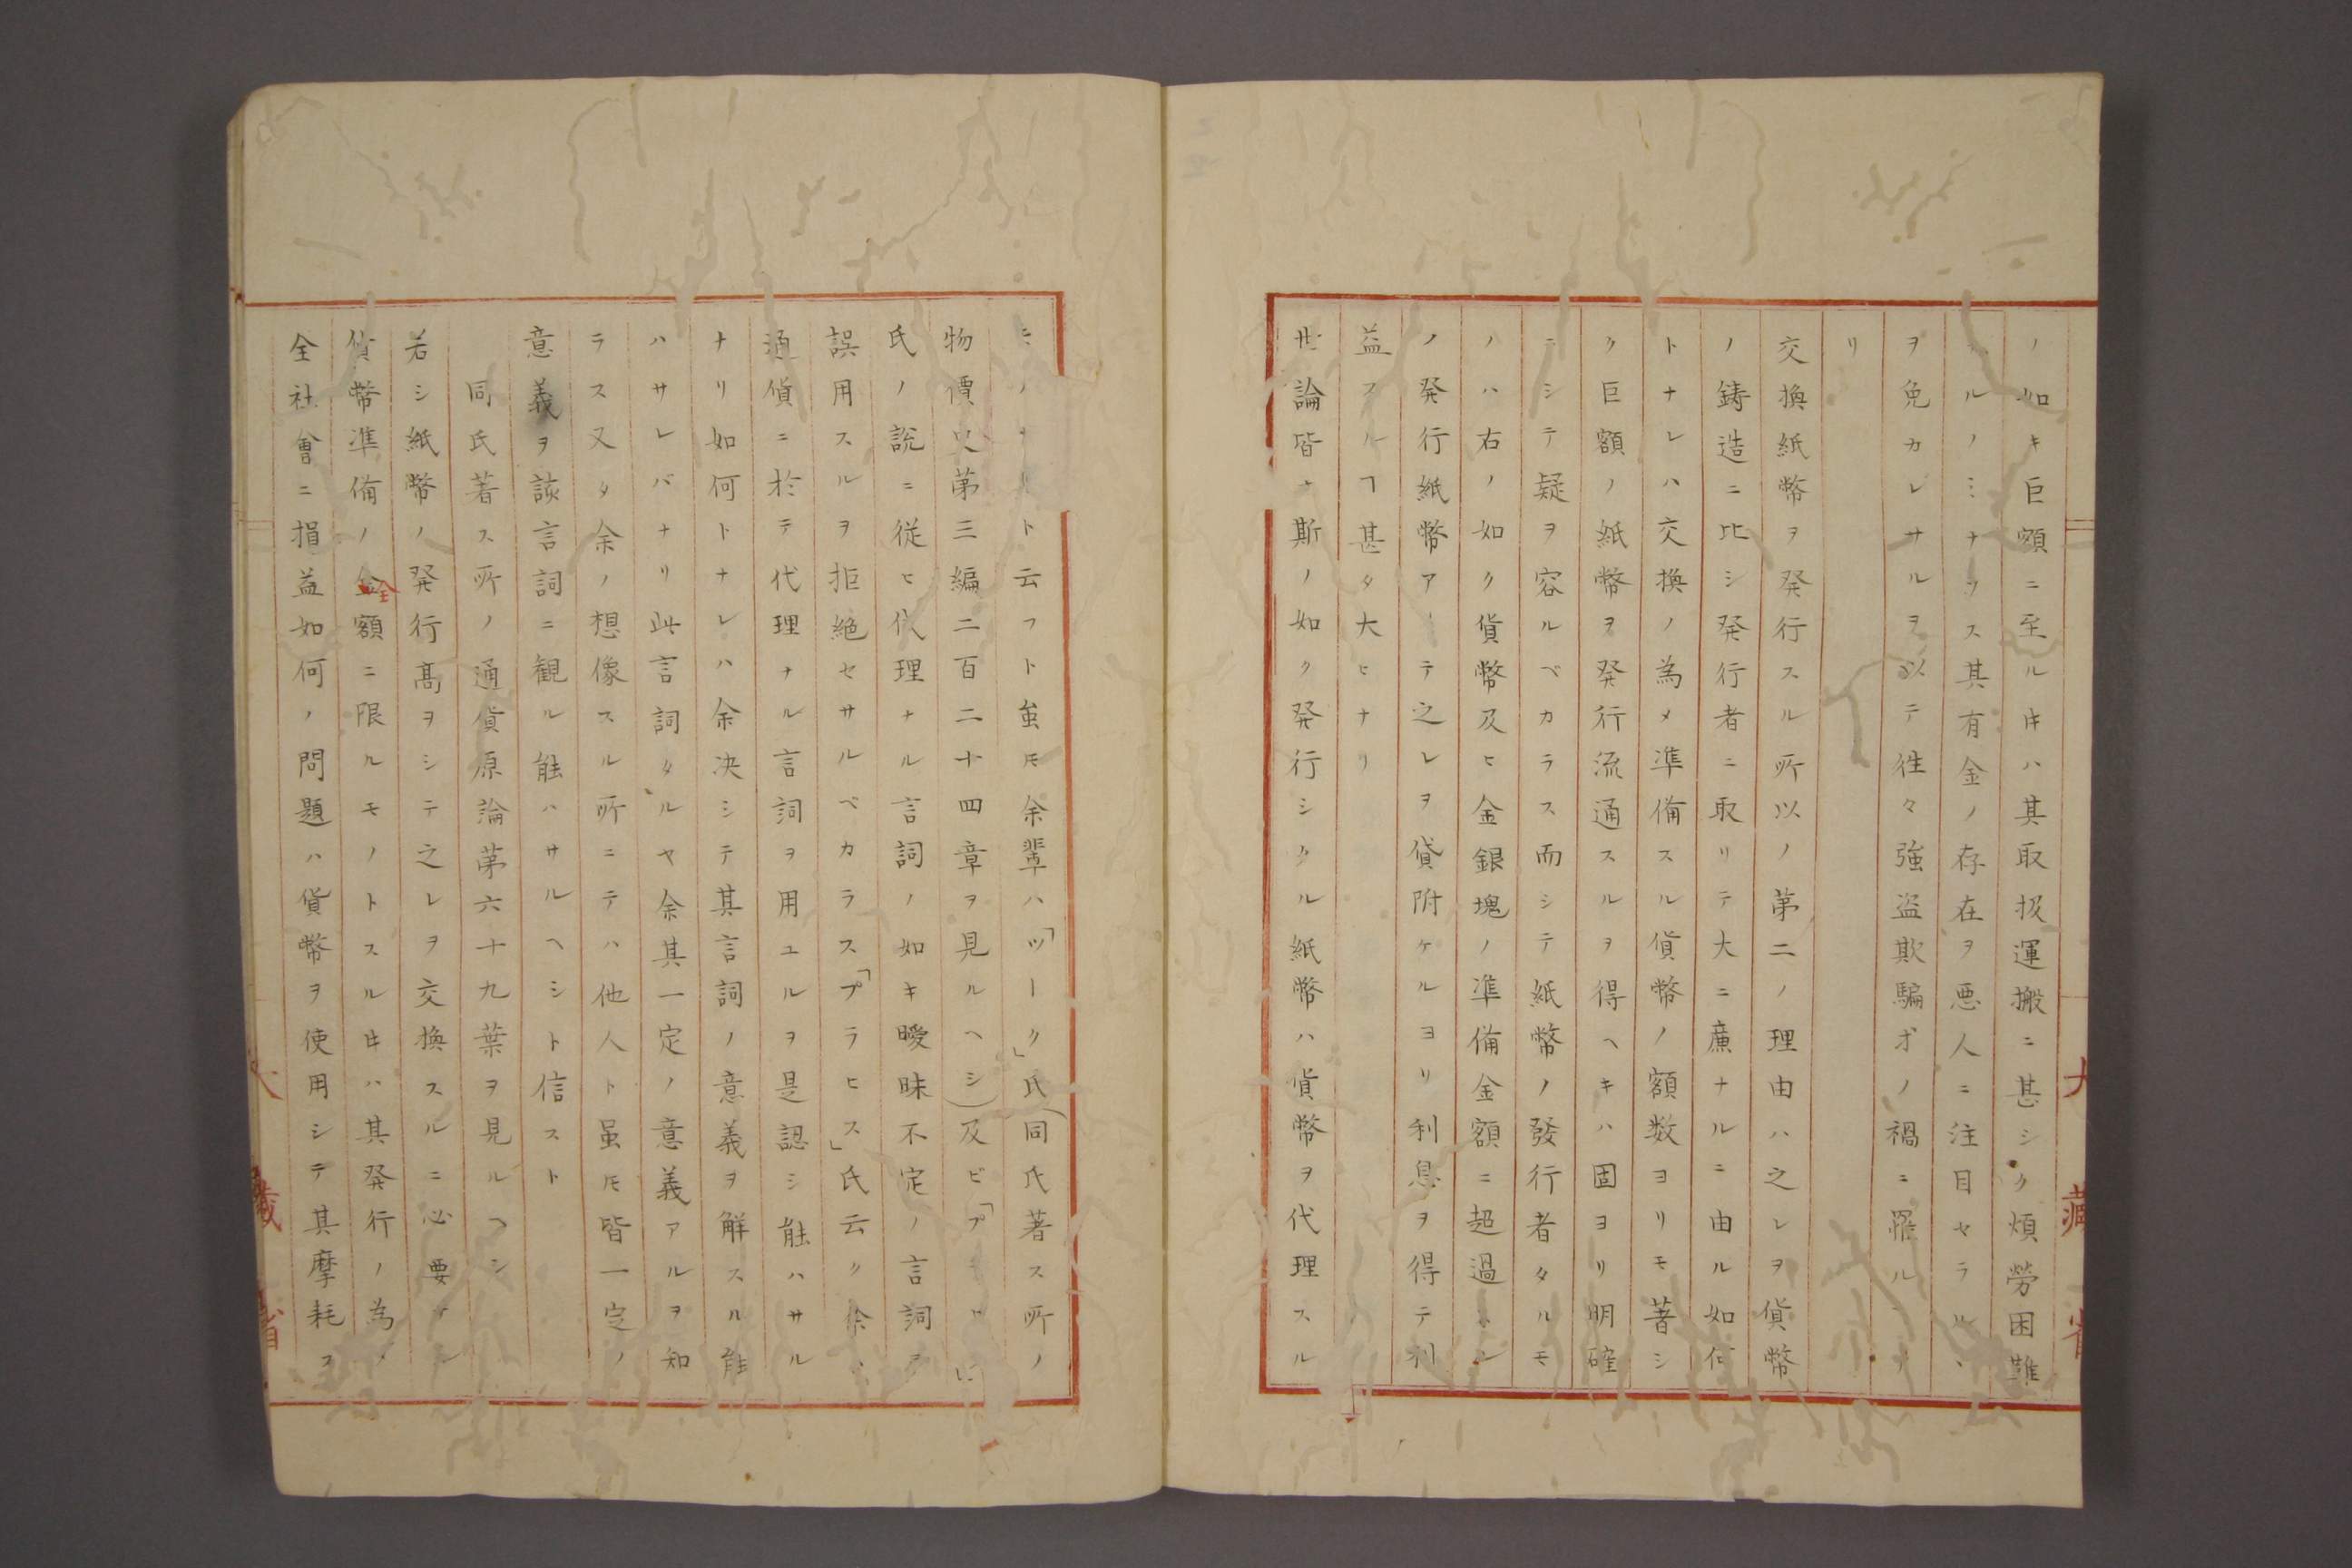 ノ如キ巨額ニ至ル㕝ハ其取扱運搬ニ甚シク煩勞困難
ルノミナラス其有金ノ存在ヲ悪人ニ注目セラルヽ
ヲ免カレサルヲ以テ徃々強盗欺騙才ノ禍ニ罹ル
リ
交換紙幣ヲ発行スル所以ノ苐二ノ理由ハ之レヲ貨幣
ノ鋳造ニ比シ発行者ニ取リテ大ニ廉ナルニ由ル如何
トナレハ交換ノ為メ準備スル貨幣ノ額数ヨリモ著シ
ク巨額ノ紙幣ヲ発行流通スルヲ得ヘキハ固ヨリ明確
ニシテ疑ヲ容ルベカラス而シテ紙幣ノ發行者タルモ
ノハ右ノ如ク貨幣及ヒ金銀塊ノ準備金額ニ超過
ノ発行紙幣アリテ之レヲ貸附ケルヨリ利息ヲ得テ利
益スルヿ甚タ大ヒナリ
世論皆ナ斯ノ如ク発行シタル紙幣ハ貨幣ヲ代理スル
ト云フト虽𪜈余輩ハ「ツーク」氏(同氏著ス所ノ
物價史苐三編二百二十四章ヲ見ルヘシ)及ビ「プ
氏ノ説ニ従ヒ代理ナル言詞ノ如キ曖昧不定ノ言詞ヲ
誤用スルヲ拒絶セサルベカラス「プラヒス」氏云ク余ハ
通貨ニ於テ代理ナル言詞ヲ用ユルヲ是認シ能ハサル
ナリ如何トナレハ余决シテ其言詞ノ意義ヲ解スル能
ハサレバナリ此言詞タルヤ余其一定ノ意義アルヲ知
ラス又タ余ノ想像スル所ニテハ他人ト虽𪜈皆一定ノ
意義ヲ該言詞ニ観ル能ハサルヘシト信スト
同氏著ス所ノ通貨原論苐六十九葉ヲ見ルヘシ
若シ紙幣ノ発行髙ヲシテ之レヲ交換スルニ必要ナル
貨幣準備ノ全額ニ限ルモノトスル㕝ハ其発行ノ為メ
全社會ニ損益如何ノ問題ハ貨幣ヲ使用シテ其摩耗ス
大藏省